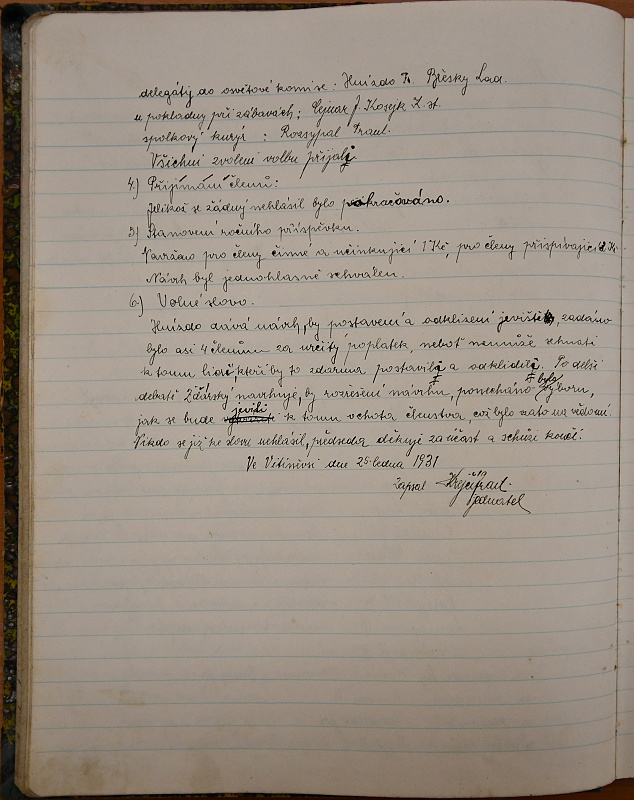 delegáty do osvětové komise: Hnízdo Fr. Břěsky Lad.
u pokladny při zábavách; Cejnar J. Kozejk K. st.
spolkový kurýr : Rozsypal Frant.
Všichni zvolení volbu přijali
4.) Přijímání členů:
Jelikož se žádný nehlásil bylo pokračováno.
5) Stanovení ročního příspěvku.
Navrženo pro členy činné a účinkující 1 Kč, pro členy přispívající Kč.
Návrh byl jednohlasně schválen.
6.) Volné slovo.
Hnízdo dává návrh, by postavení a odklizení jeviště, zadáno
bylo asi 4 členům za určitý poplatek, neboť nemůže sehnati
k tomu lidi, kteří by to zdarma postavili a odklidili. Po delší
debatě Žďárský navrhuje, by rozřešení návrhu, ponecháno bylo výboru,
jak se bude jeviti k tomu ochota členstva, což bylo vzato na vědomí.
Nikdo se již ke slovu nehlásil, předseda děkuje za účast a schůzi končí.
Ve Vitiněvsi dne 25. ledna 1931
Zapsal Krejčí Frant.
jednatel